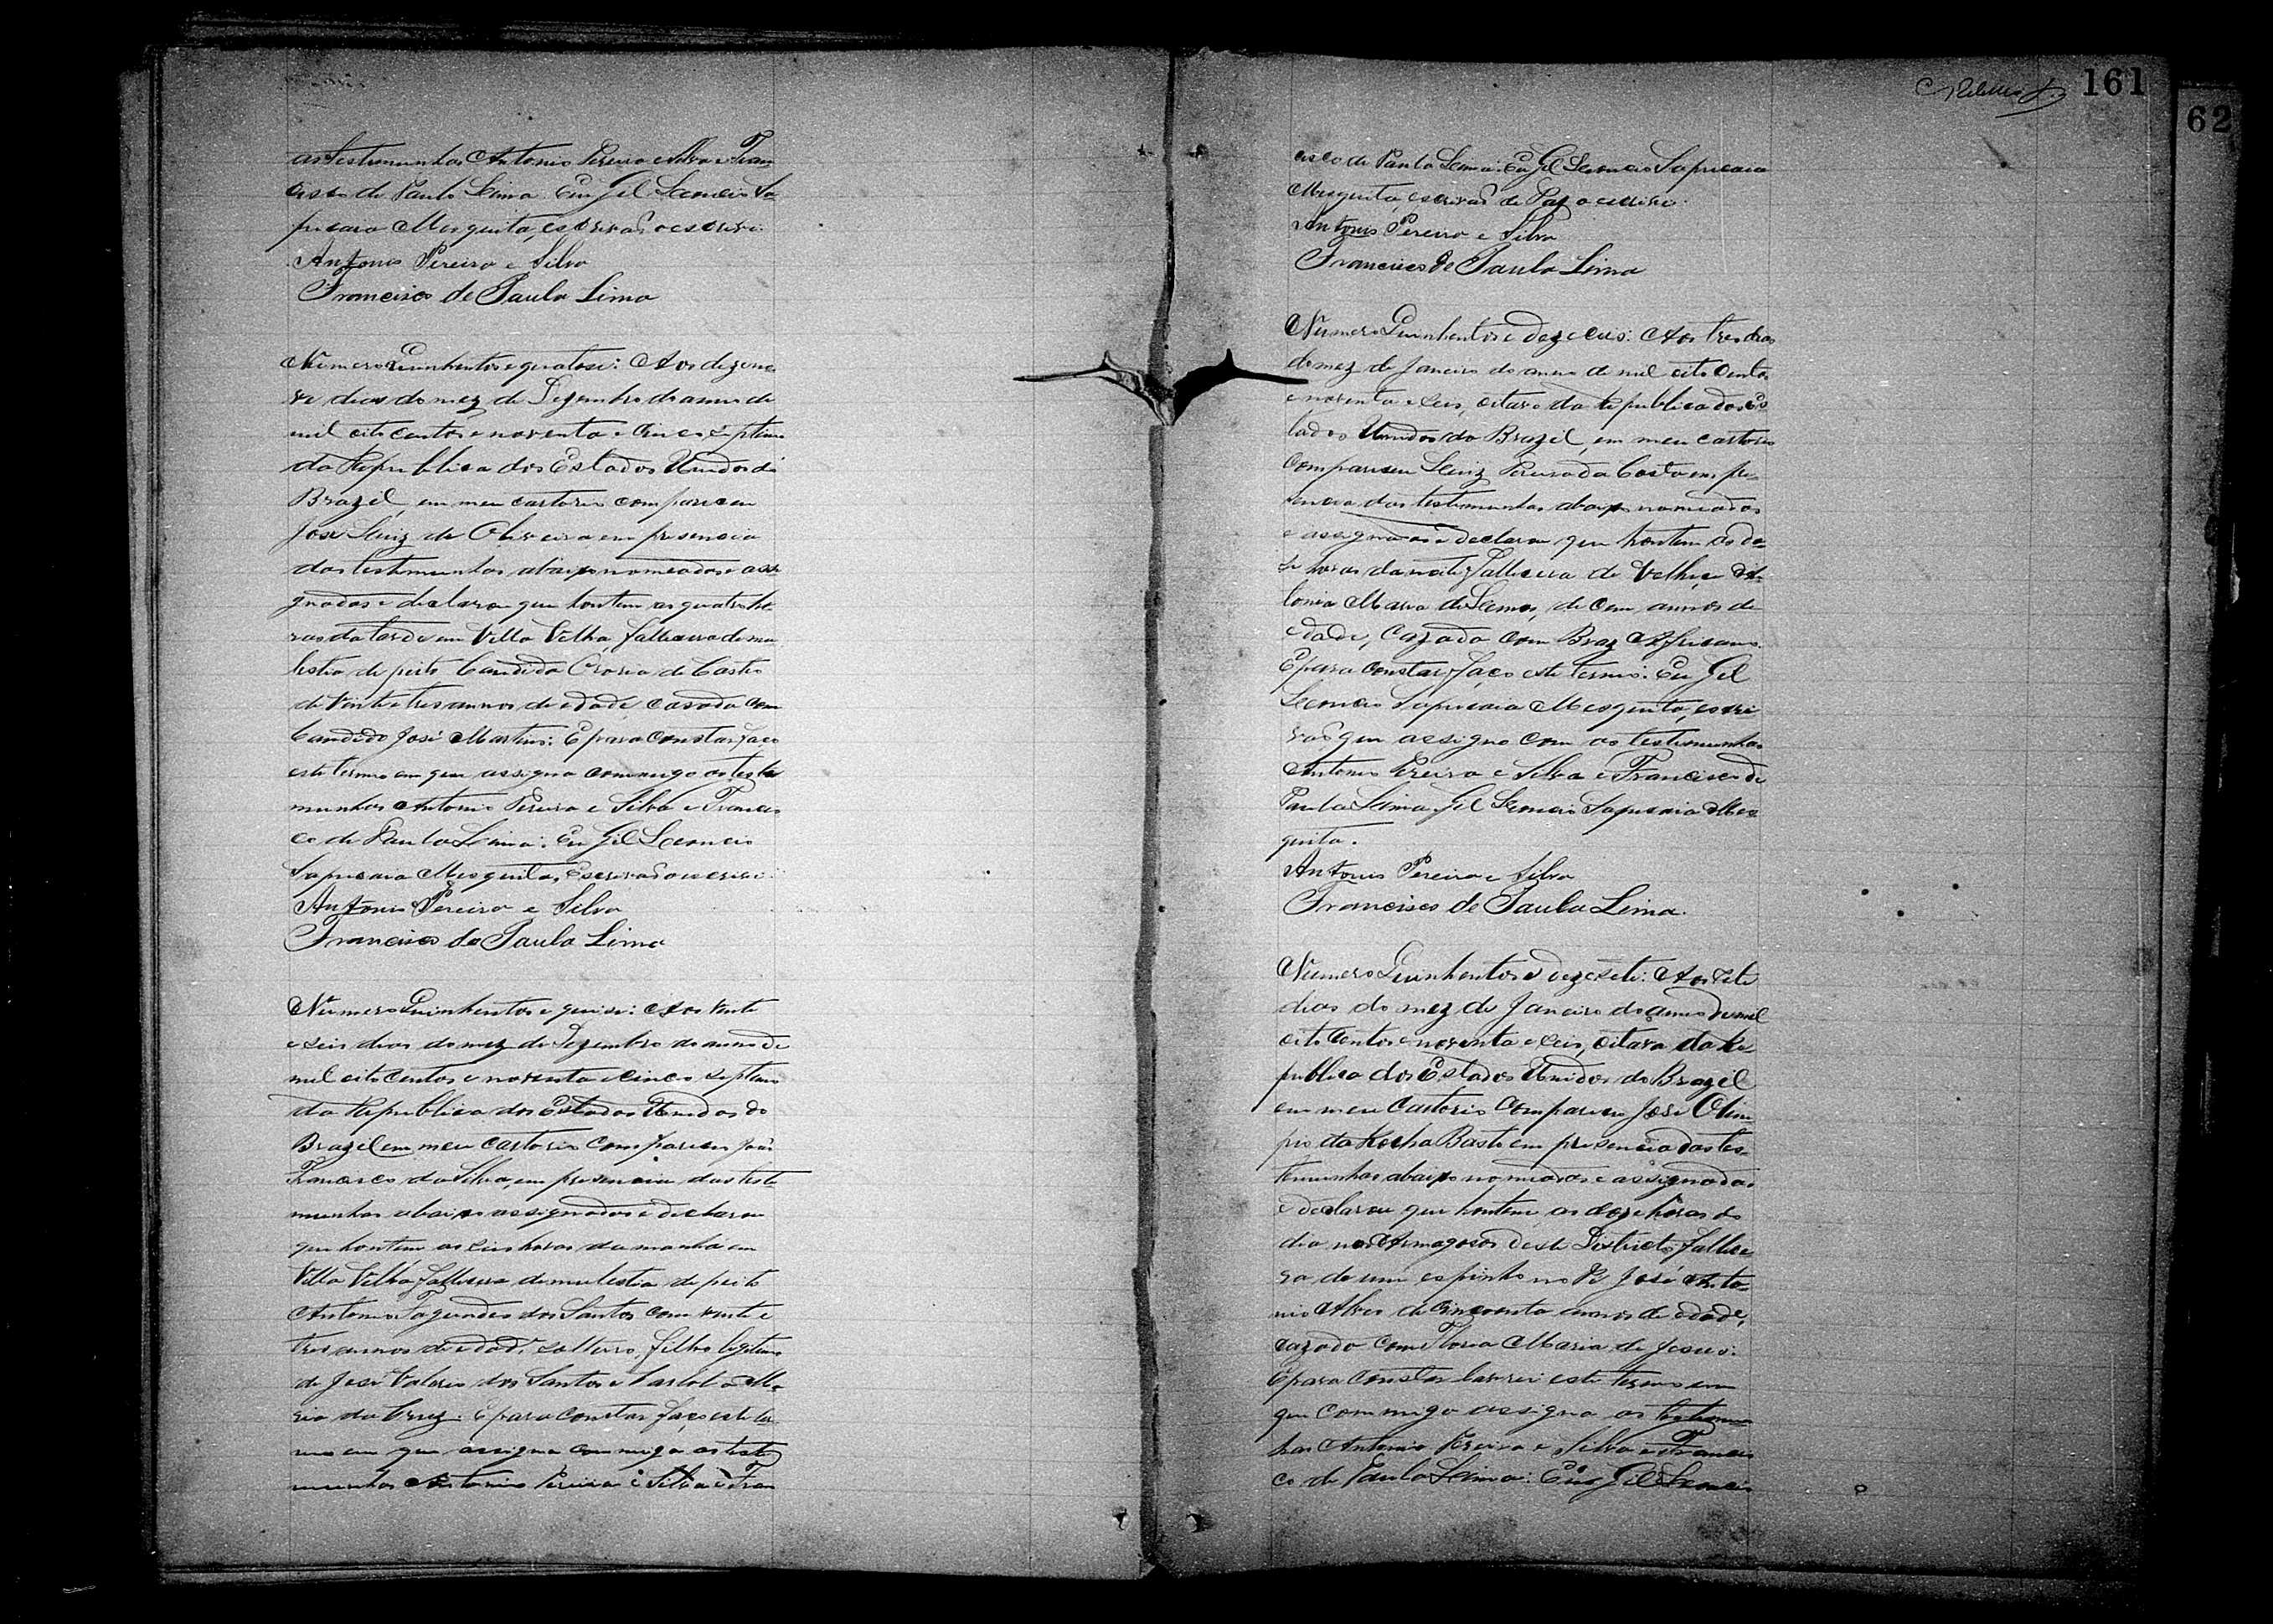 as testemunhas Antonio Pereira e Silva e Fran
cisco de Paulo Lima. Eu Gil Leoncio Sa
pucaia Mesquita, escrivão o escrevi.
Antonio Pereira e Silva
Francisco de Paula Lima
Numero Quinhentos e quatose: Aos dezeno
ve dias do mez de Dezembro do anno de
mil oito centos e noventa e cinco septimo
da Republica dos Estados Unidos do
Brazil, em meu cartorio compareceu
José Luiz de Oliveira, em presencia
das testemunhas abaixo nomeadas e assi
gnadas e declarou que hontem as quatro ho
ras da tarde em Villa Velha, fallecera de mo
lestia de peito Candida Maria de Castro
de Vinte e tres annos de edade, casada com
Candido José Martins: E para constar faço
este termo em que assigna commigo as teste
munhas Antonio Pereira e Silva e Francis
co de Paula Lima: Eu Gil Leoncio
Sapucaia Mesquita, Escrivão o escrevi.
Antonio Pereira e Silva
Francisco de Paula Lima
Numero Quinhentos e quinse: Aos vinte
e seis dias do mez de Dezembro do anno de
mil oito centos e noventa e cinco septimo
da Republica dos Estados Unidos do
Brazel em meu cartorio compareceu João
Francisco da Silva, em presencia das teste
munhas abaixo assignadas e declarou
que hontem as seis horas da manhã em
Villa Velha fallecera de mulestia de peito
Antonio Fagundes dos Santos com vinte e
tres annos de edade solteiro, filho legitimo
de José Valerio dos Santos e Carlota Ma
ria da Cruz. E para constar faço este ter
mo em que assigna commigo as teste
munhas Antonio Pereira e Silva e Fran
161
62
cisco de Paula Lima: Eu Gil Leoncio Sapucaia
Mesquita, escrivão de Paz o escrevi.
Antonio Pereira e Silva
Francisco de Paula Lima
Numero Quinhentos e dezeceis: Aos tres dias
do mez de Janeiro do anno de mil oito centos
e noventa e seis, oitavo da Republica dos Es
tados Unidos do Brazil, em meu cartorio
compareceu Luiz Pereira da Costa em pre-
sencia das testemunhas abaixo nomeadas
e assignadas e declarou que hontem as do-
se horas da noite, fallecera de Velhice
Maria de Lemos, de cem annos de
edade, Cazada com Braz Africano.
E para constar faço este termo: Eu Gil
Leoncio Sapucaia Mesquita, escri
vão, que assigno com as testemunhas
Antonio Pereira e Silva e Francisco de
Paula Lima. Gil Leoncio Sapucaia Mes
quita.
Antonio Pereira e Silva
Francisco de Paula Lima.
Numero Quinhentos e dezesete: Aos sete
dias do mez de Janeiro do anno de mil
oito centos e noventa e seis, oitavo da Re-
publica dos Estados Unidos do Brazil
em meu Cartorio compareceu José Olim
pio da Rocha Basto em presencia das tes-
temunhas abaixo nomeadas e assignadas
e declarou que hontem, as doze horas do
dia nos Armagosos deste Districto, fallece
ra, de um espinho no Pé José Anto-
nio Alves de cincoenta annos de edade,
cazado com Maria de Jesus.
E para constar lavrei este termo em
que commigo assigna as testemu
has Antonio Pereira e Silva e Francis
co de Paula Lima: Eu Gil Leoncio